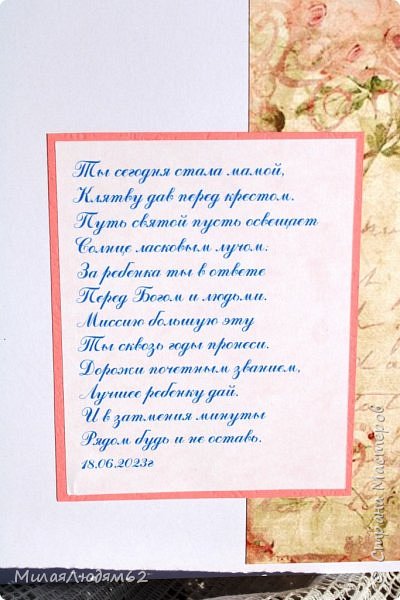 Ты сегодня стала мамой,
Клятву дав перед крестом.
Путь святой пусть освещает
Солнце ласковым лучом:
За ребенка ты в ответе
Перед Богом и людьми.
Миссию большую эту
Ты сквозь годы пронеси.
Дорожи почетным званием,
Лучшее ребенку дай.
И в затмения минуты
Рядом будь и не оставь.
18.06.2023г
МилаяЛюдям62
© Страна Мастеров